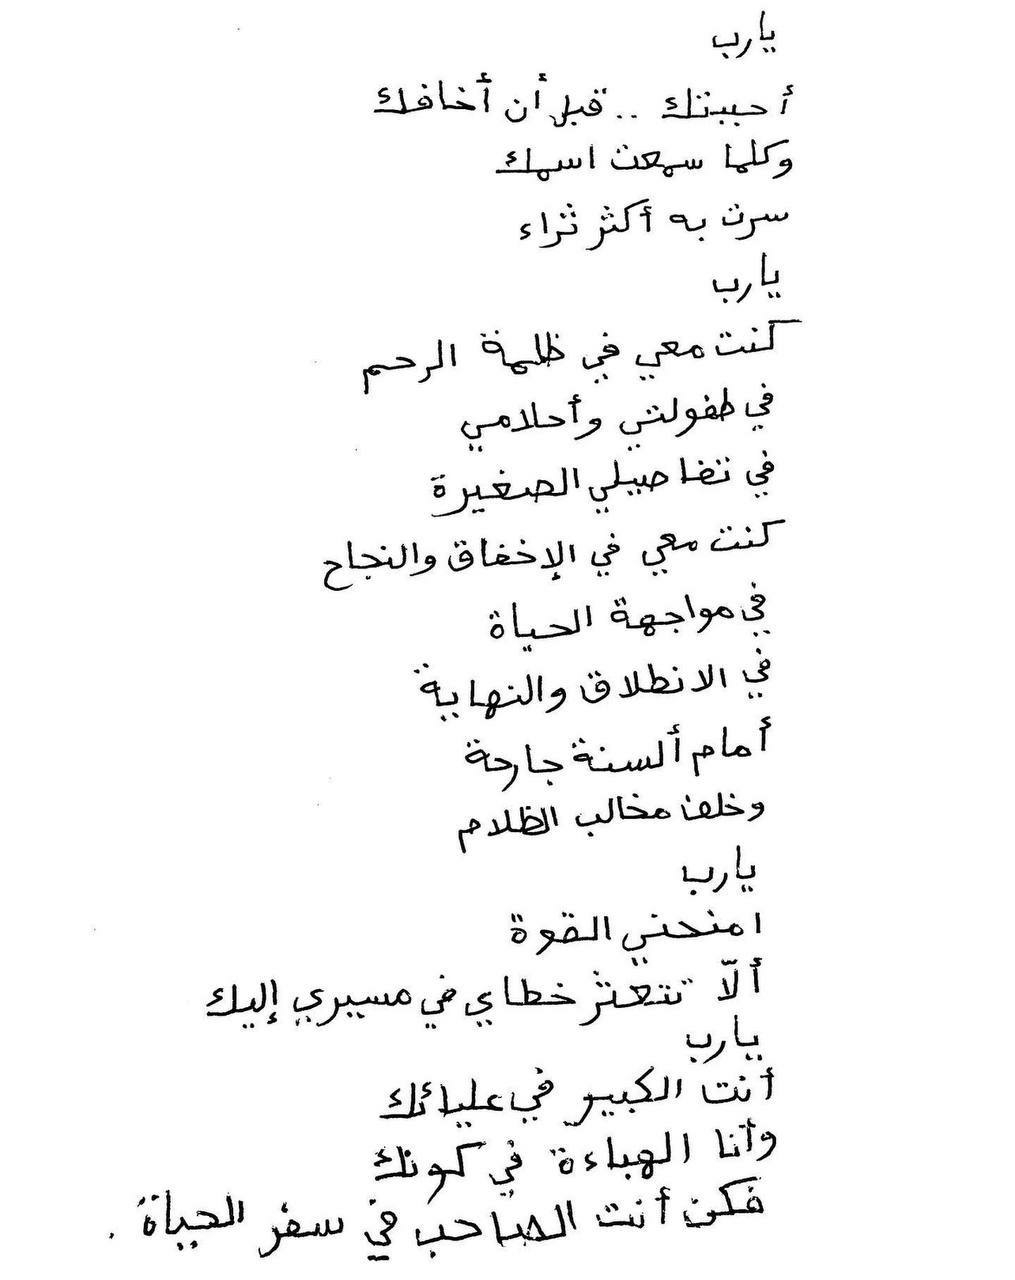 يارب
أحببتك .. قبل أن أخافك
وكلما سمعت اسمك
سرت به أكثر ثراء
يارب
كنت معي في ظلمة الرحم
في طفولتي وأحلامي
في تفاصيلي الصغيرة
كنت معي في الإخفاق والنجاح
في مواجهة الحياة
في الانطلاق والنهاية
أمام ألسنة جارحة
وخلف مخالب الظلام
يارب
امنحني القوة
ألّا تتعثر خطاي في مسيري إليك
يارب
أنت الكبير في عليائك
وأنا الهباءة في كونك
فكن أنت الصاحب في سفر الحياة .